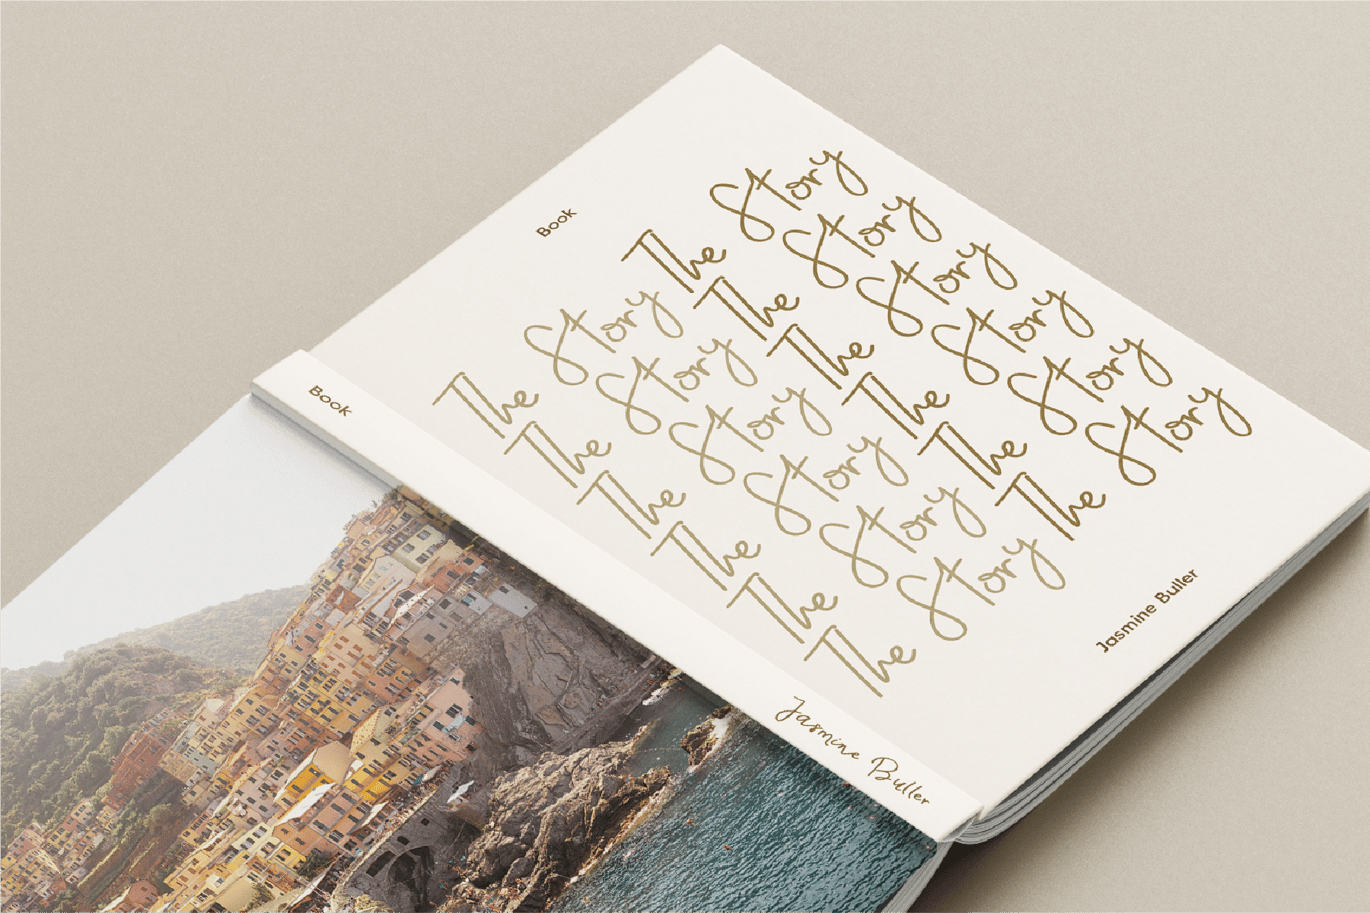 Book
The Story The Story
The Story The Story
The Story The Story
The Story The Story
The Story The Story
The Story The Story
Jasmine Buller
Book
Jasmine Buller